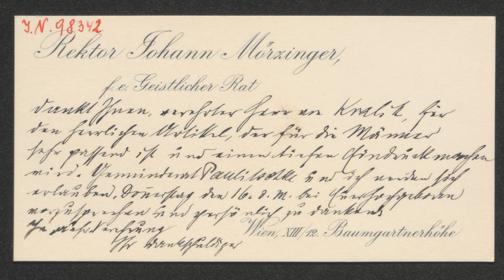 J.N. 98342
Rektor Johann Mörzinger,
f. e. Geistlicher Rat
dankt Ihnen, verehrter Herr von Kralik, für
den herrlichen Artikel, der für die Männer
sehr passend ist und einen tiefen Eindruck machen
wird. Gemeinderat und ich werden sich
erlauben, Donnerstag den 16. d. M. bei Euer Hochgeboren
vorzusprechen und persönlich zu danken.
In Verehrung
Wien, XIII/12. Baumgartnerhöhe
Ihr dankschuldiger